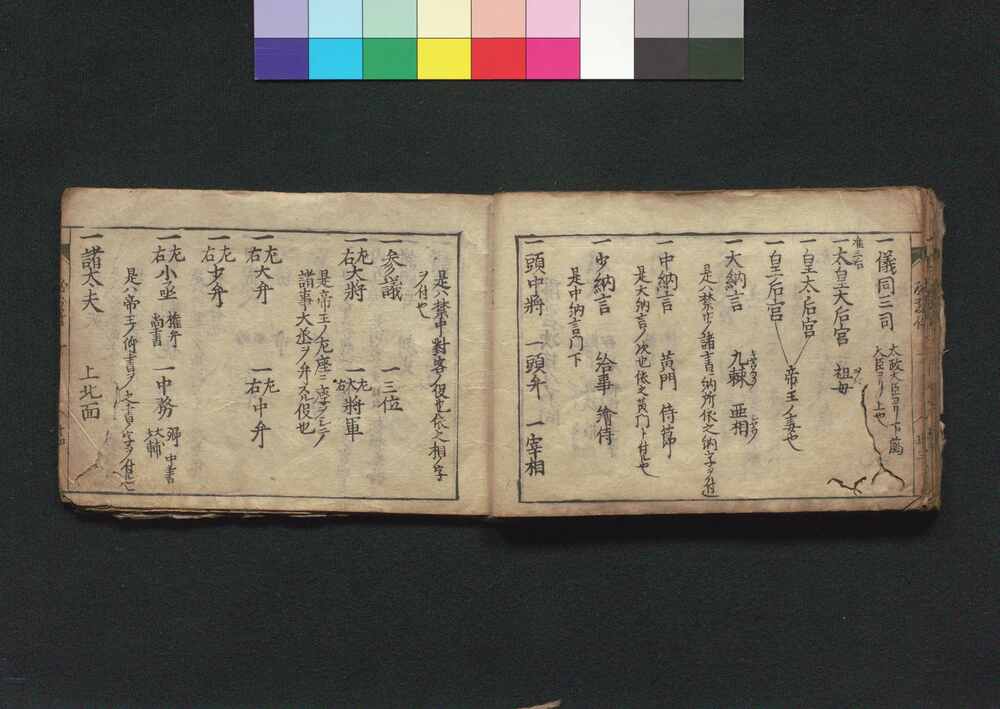 一儀同三司
太政大臣ヨリ下﨟
大臣ヨリ上也
准三宮
一太皇太后宮 祖母
一皇太后宮
一皇后宮 帝王ノ妻也
一大納言 九棘 亜相
是ハ禁中ノ諸書ヲ納所依之納ノ字ヲ付也
一中納言 黄門 侍郎
是大納言ノ次也依之黄門ト付也
一少納言 給事
是中納言門下
一頭中將 一頭弁 一宰相
是ハ禁中對客ノ役也依之相ノ字
ヲ付也
一参議 一三位
一左右大將 一左右大將軍
是帝王ノ左座ニ座ヲシテ
諸事大丞ヲ弁スル役也
一左右大弁 一左右中弁
一左右少弁
一左右小丞 權弁 尚書 一中務 卿 中書 大輔
是ハ帝王ノ倚書ヲノ之書ノ字ヲ付也
一諸太夫 上北面